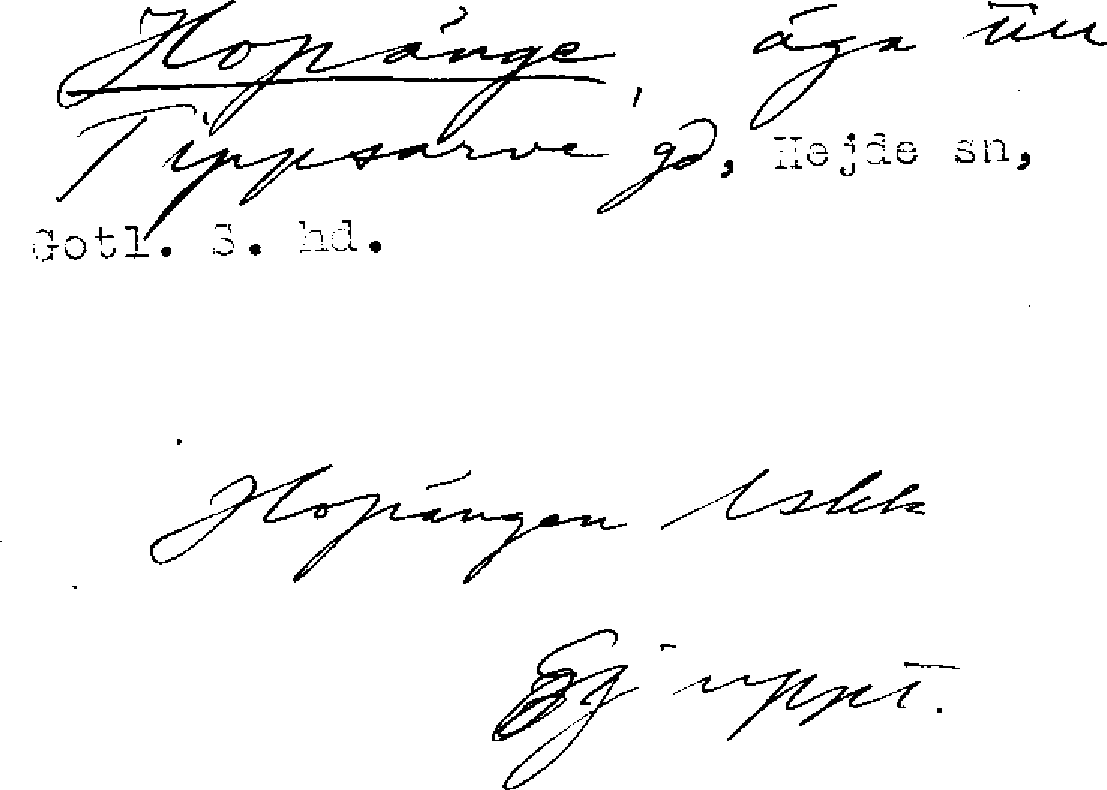 Hopänge, äga un
Tippsarve gd, Hejde sn,
Gotl. S. hd.
Hopängen Uskk
Ej uppt.